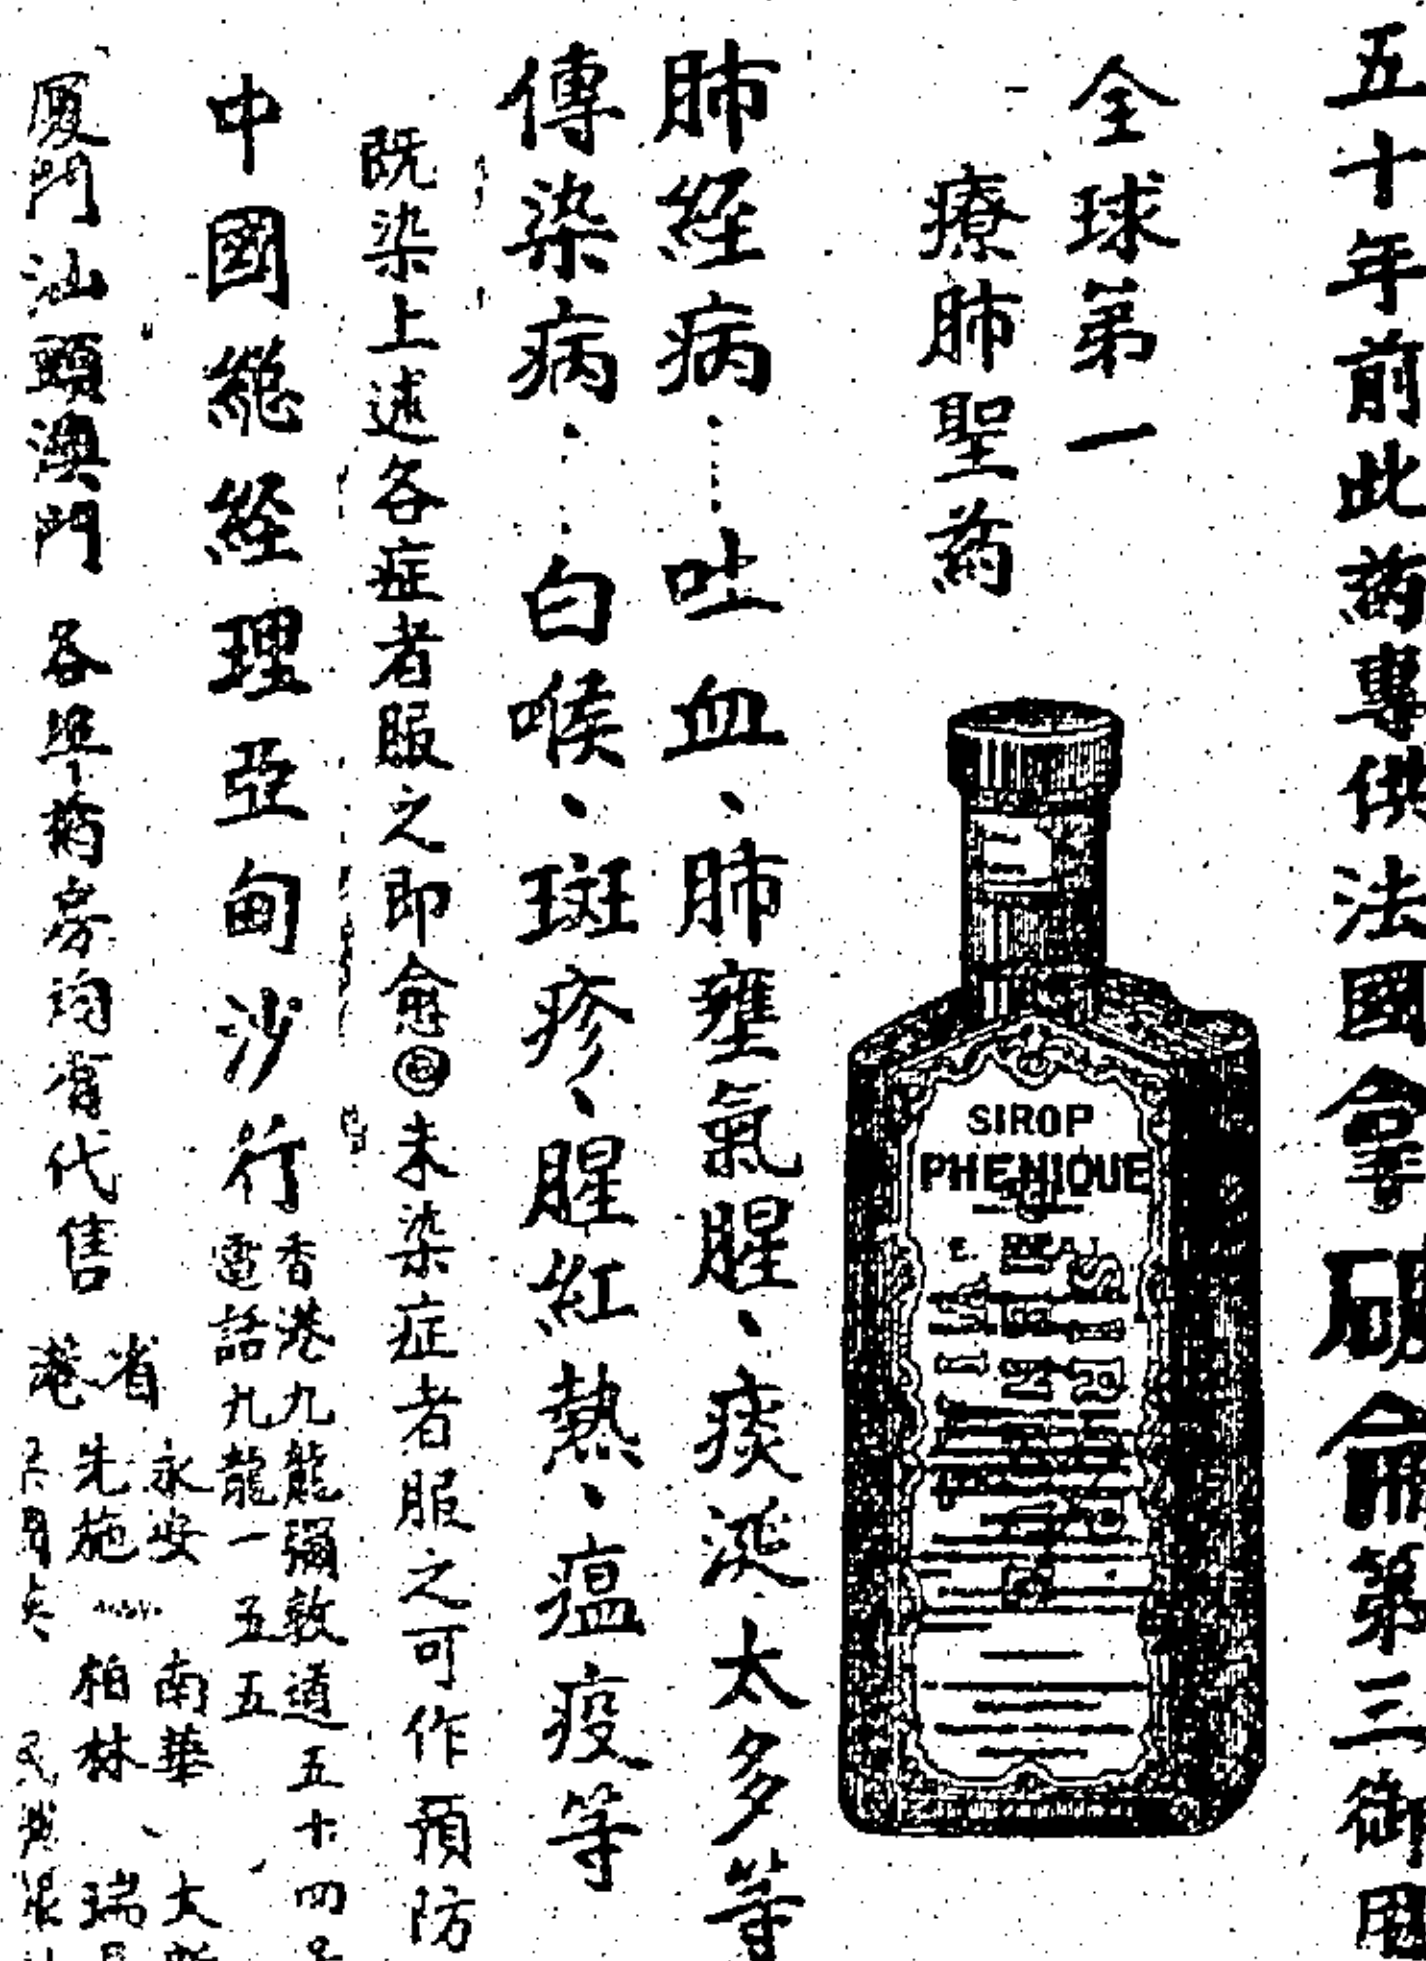 五十年前此葯專供法國拿破侖第三御用
全球第一
療肺聖葯
SIROP
PHENIQUE
肺経病……吐血、肺壅氣腥、痰涎太多等
傳染病……白喉、斑疹、腥紅熱、瘟疫等
既染上述各症者服之即愈◎未染症者服之可作預防
中國總経理亞甸沙行
香港九龍彌敦道五十四号
電話九龍一五五
厦門汕頭澳門 各埠葯房均有代售
省港
永安 南華、大新
先施 柏林 瑞昌